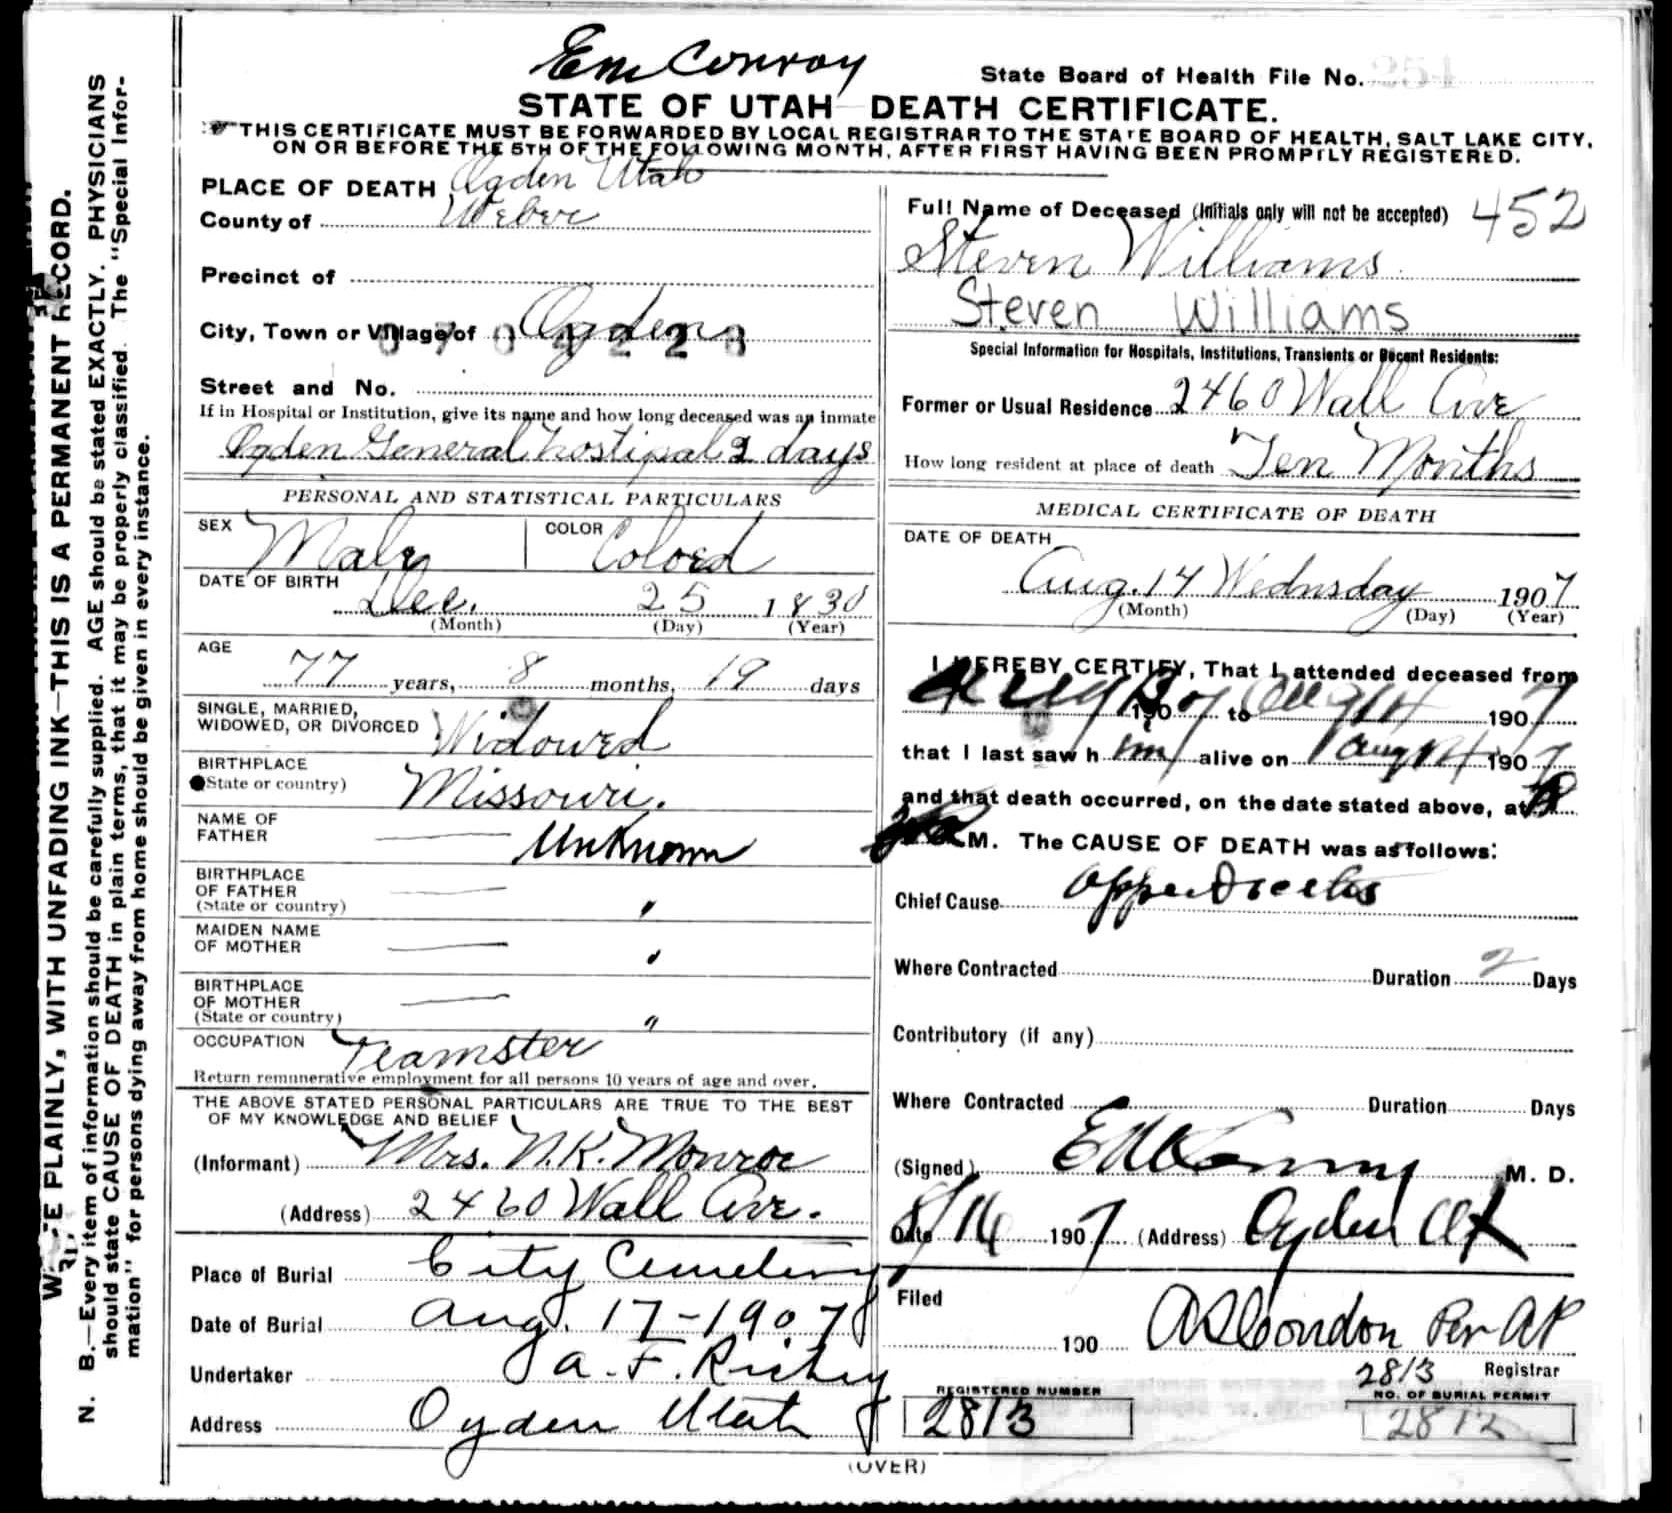 Em Conroy
State Board of Health File No. 254
STATE OF UTAH DEATH CERTIFICATE.
THIS CERTIFICATE MUST BE FORWARDED BY LOCAL REGISTRAR TO THE STATE BOARD OF HEALTH, SALT LAKE CITY,
ON OR BEFORE THE 5TH OF THE FOLLOWING MONTH, AFTER FIRST HAVING BEEN PROMPTLY REGISTERED.
N. B.—Every item of information should be carefully supplied. AGE should be stated EXACTLY. PHYSICIANS
should state CAUSE OF DEATH in plain terms, that it may be properly classified. The "Special Infor-
mation" for persons dying away from home should be given in every instance.
PLAINLY, WITH UNFADING INK—THIS IS A PERMANENT RECORD.
PLACE OF DEATH Ogden Utah
County of Weber
Precinct of
City, Town or Village of Ogden
0704228
Street and No.
If in Hospital or Institution, give its name and how long deceased was an inmate
Ogden General hostipal 2 days
PERSONAL AND STATISTICAL PARTICULARS
SEX Male COLOR Colord
DATE OF BIRTH Dec. 25 1830
(Month) (Day) (Year)
AGE 77 years, 8 months, 19 days
SINGLE, MARRIED,
WIDOWED, OR DIVORCED Widowed
BIRTHPLACE
(State or country) Missouri.
NAME OF
FATHER Unknown
BIRTHPLACE
OF FATHER "
(State or country)
MAIDEN NAME
OF MOTHER "
BIRTHPLACE
OF MOTHER
(State or country) "
OCCUPATION Teamster
Return remunerative employment for all persons 10 years of age and over.
THE ABOVE STATED PERSONAL PARTICULARS ARE TRUE TO THE BEST
OF MY KNOWLEDGE AND BELIEF
(Informant) Mrs. N.K. Monroe
(Address) 2460 Wall Ave.
Place of Burial City Cemetery
Date of Burial Aug. 17-1907
Undertaker A. F. Richey
Address Ogden Utah
Full Name of Deceased (Initials only will not be accepted) 452
Steven Williams
Steven Williams
Special Information for Hospitals, Institutions, Transients or Recent Residents:
Former or Usual Residence 2460 Wall Ave
How long resident at place of death Ten Months
MEDICAL CERTIFICATE OF DEATH
DATE OF DEATH
Aug. 14 Wednsday 1907
(Month) (Day) (Year)
I HEREBY CERTIFY, That I attended deceased from
Aug 1907 to Aug 14 1907
that I last saw him alive on Aug 14 1907
and that death occurred, on the date stated above, at
M. The CAUSE OF DEATH was as follows:
Chief Cause Appendicitis
Where Contracted Duration 2 Days
Contributory (if any)
Where Contracted Duration Days
(Signed) M. D.
Date 8/16 1907 (Address) Ogden Ut
Filed
190 Condon Per AP
2813 Registrar
REGISTERED NUMBER NO. OF BURIAL PERMIT
2813 2812
(OVER)